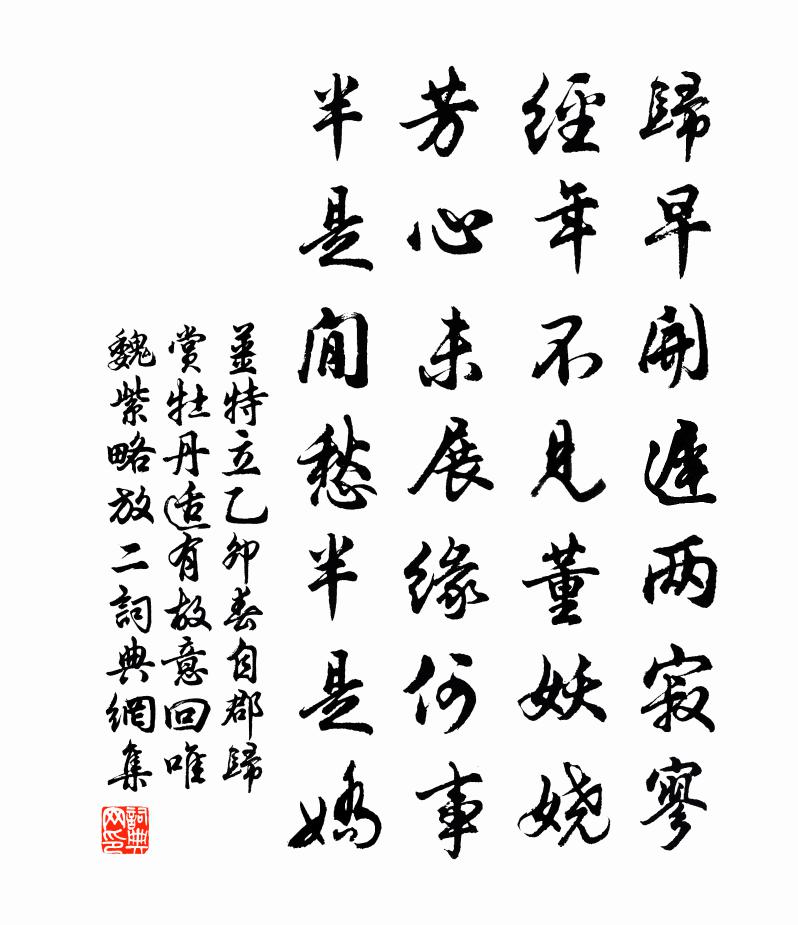 歸早開遲兩寂寥
經年不見董妖嬈
芳心未展緣何事
半是閒愁半是嬌
姜特立乙卯春自郡歸
賞牡丹適有故意回唯
魏紫略放二詞典網集
詞典網印